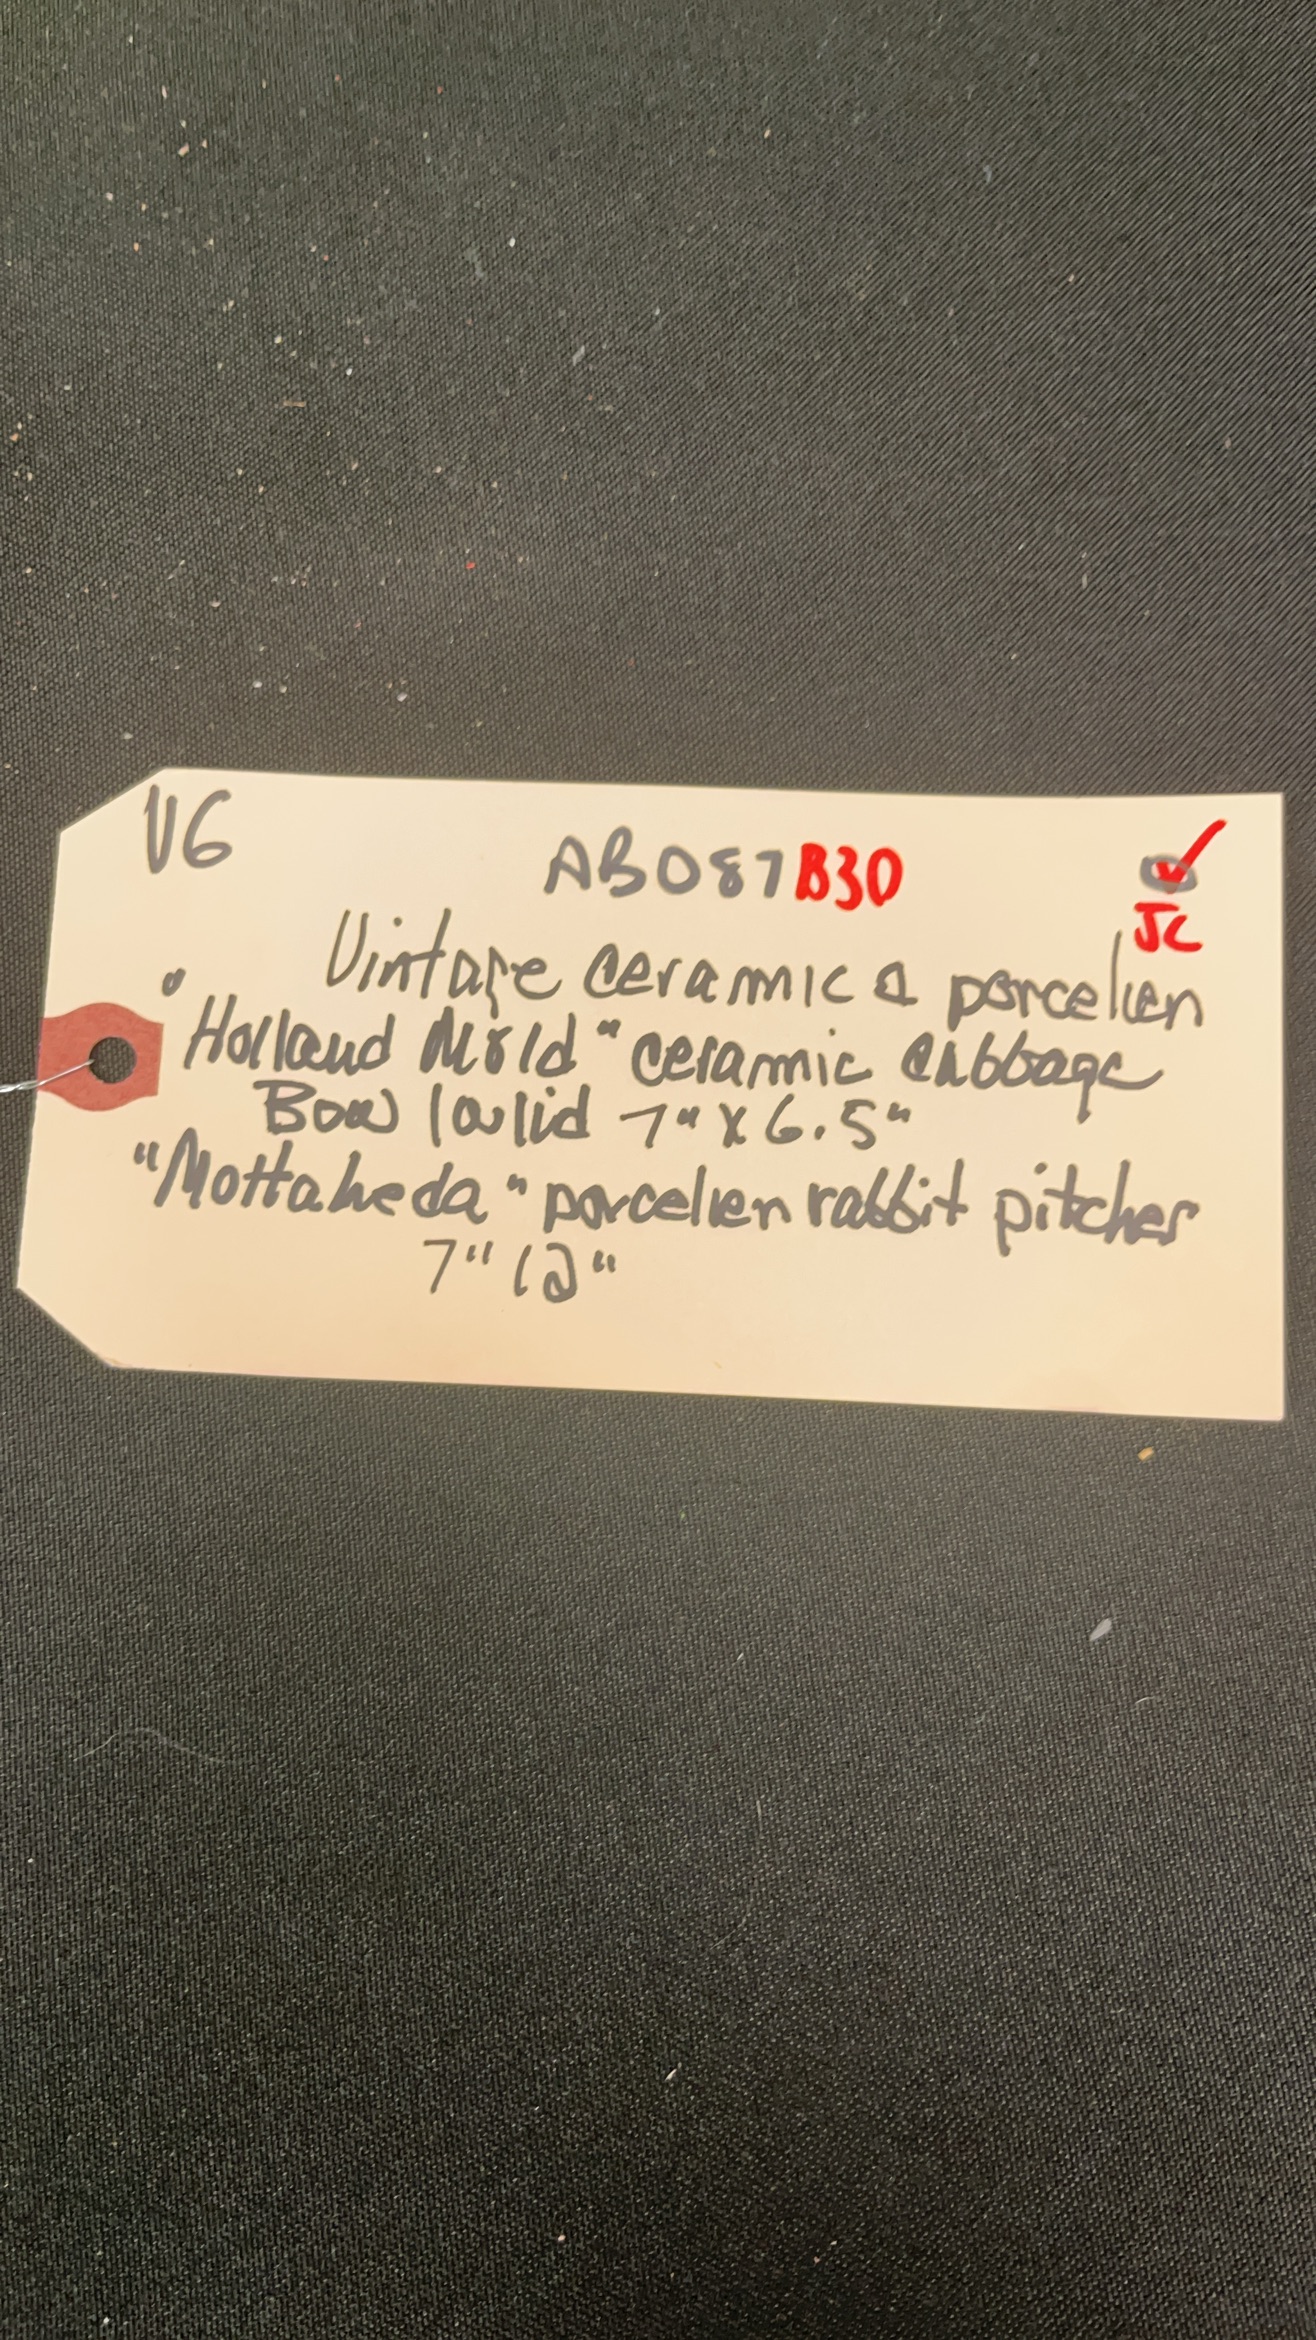 V6
AB087B30
JC
Vintage ceramic & porcelien
"Holland Mold" ceramic cabbage
Bowl w/lid 7" x 6.5"
"Mottaheda" porcelien rabbit pitcher
7"